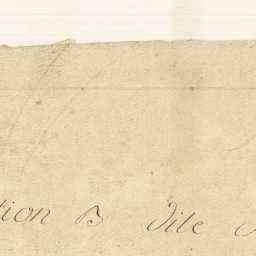 tion B Dile